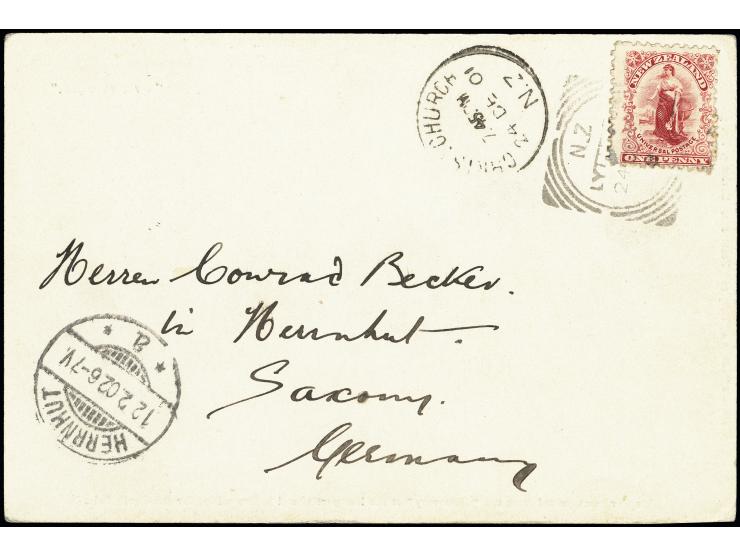 CHRISTCHURCH
7.45 PM
24 DE
01
N.Z
N.Z
LYTT
24
NEW ZEALAND
UNIVERSAL POSTAGE
ONE PENNY
Herren Conrad Becker.
in Herrnhut.
Saxony.
Germany
HERRNHUT
12.2.02.6-7V.
* a *